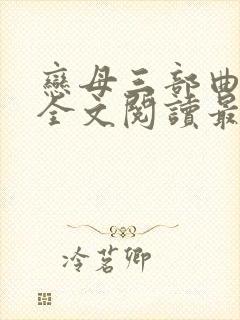 戀母三部曲
全文閱讀最
冷茗卿